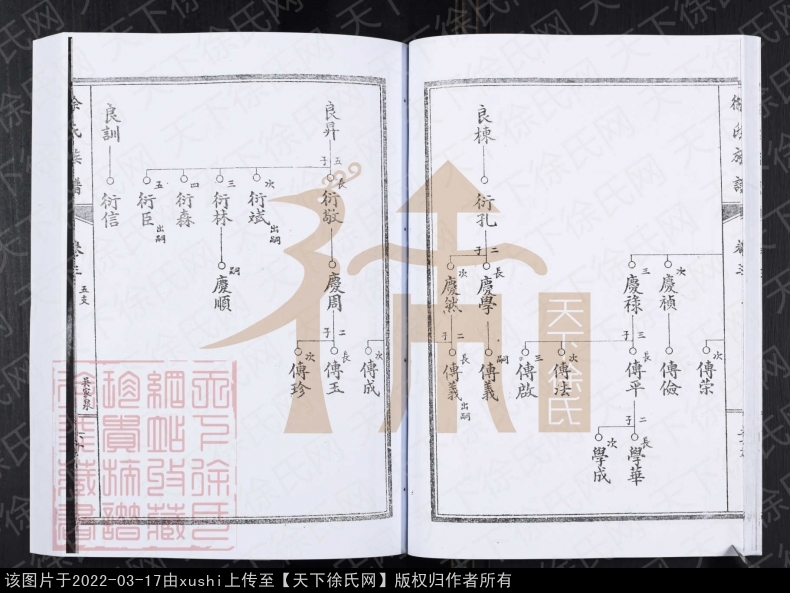 徐氏族譜
卷三
慶禎
次
傳儉
傳榮
次
慶祿
三
三子
傳平
長
傳法
次
傳啟
三
二子
學華
長
學成
次
良棟
衍孔
二子
慶學
長
傳義
嗣
慶然
次
二子
傳義
長
出嗣
傳成
次
良昇
五子
衍敬
長
慶周
二子
傳玉
長
傳珍
次
衍斌
次
出嗣
衍林
三
慶順
嗣
衍森
四
衍臣
五
出嗣
良訓
衍信
徐氏族譜
卷三
五支
長家泉
天下徐氏
天下徐氏网
该图片于2022-03-17由xushi上传至【天下徐氏网】版权归作者所有